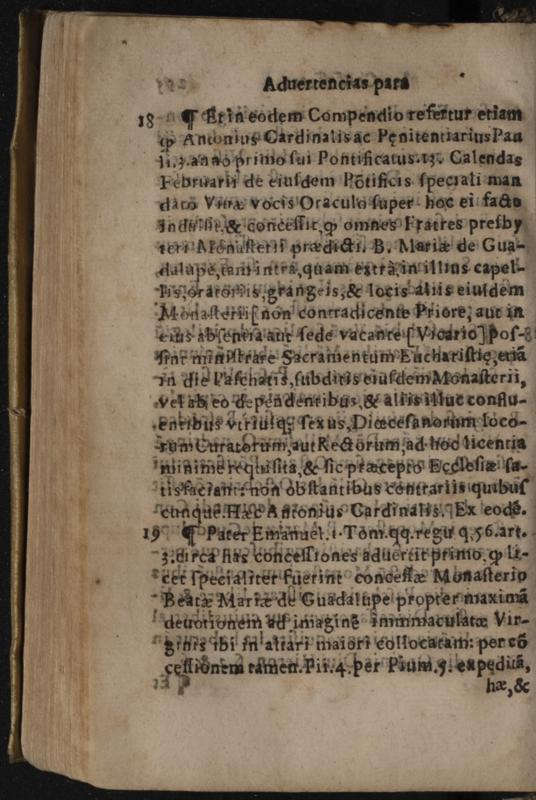 Aduertencias para
18 ¶ Et in eodem Compendio refertur etiam
q̃ Antonius Cardinalis ac Pęnitentiarius Pau
li.3. anno primo sui Pontificatus.13. Calendas
Februarii de eiusdem Põtificis speciali man
dato Viuæ vocis Oraculo super hoc ei facto
indulsit, & concessit, q̃ omnes Fratres presby
teri Monasterii prædicti. B. Mariæ de Gua-
dalupe, tam intra, quam extra, in illius capel-
lis, oratoriis, grangeis, & locis aliis eiusdem
Monasterii [non contradicente Priore, aut in
eius absentia aut sede vacante [Vicario] pos-
sint ministrare Sacramentum Eucharistię, etiã
in die Paschatis, subditis eiusdem Monasterii,
vel ab eo dependentibus, & aliis illuc conflu-
entibus vtriusq; sexus, Diœcesanorum loco-
rum Curatorum, aut Rectorum, ad hoc licentia
minime requisita, & sic præcepto Ecclesiæ sa-
tisfaciant: non obstantibus contrariis quibus
cunque. Hæc Antonius Cardinalis. Ex eodē.
19 ¶ Pater Emanuel. 1. Tom. qq. regu q, 56. art.
3. circa has concessiones aduertit primo. q̃ li-
cet specialiter fuerint concessæ Monasterio
Beatæ Mariæ de Guadalupe propter maximã
deuotionem ad imaginē immmaculatæ Vir-
ginis ibi in altari maiori collocatam: per cõ
cessionem tamen. Pii. 4. per Pium. 5. expeditã,
hæ, &